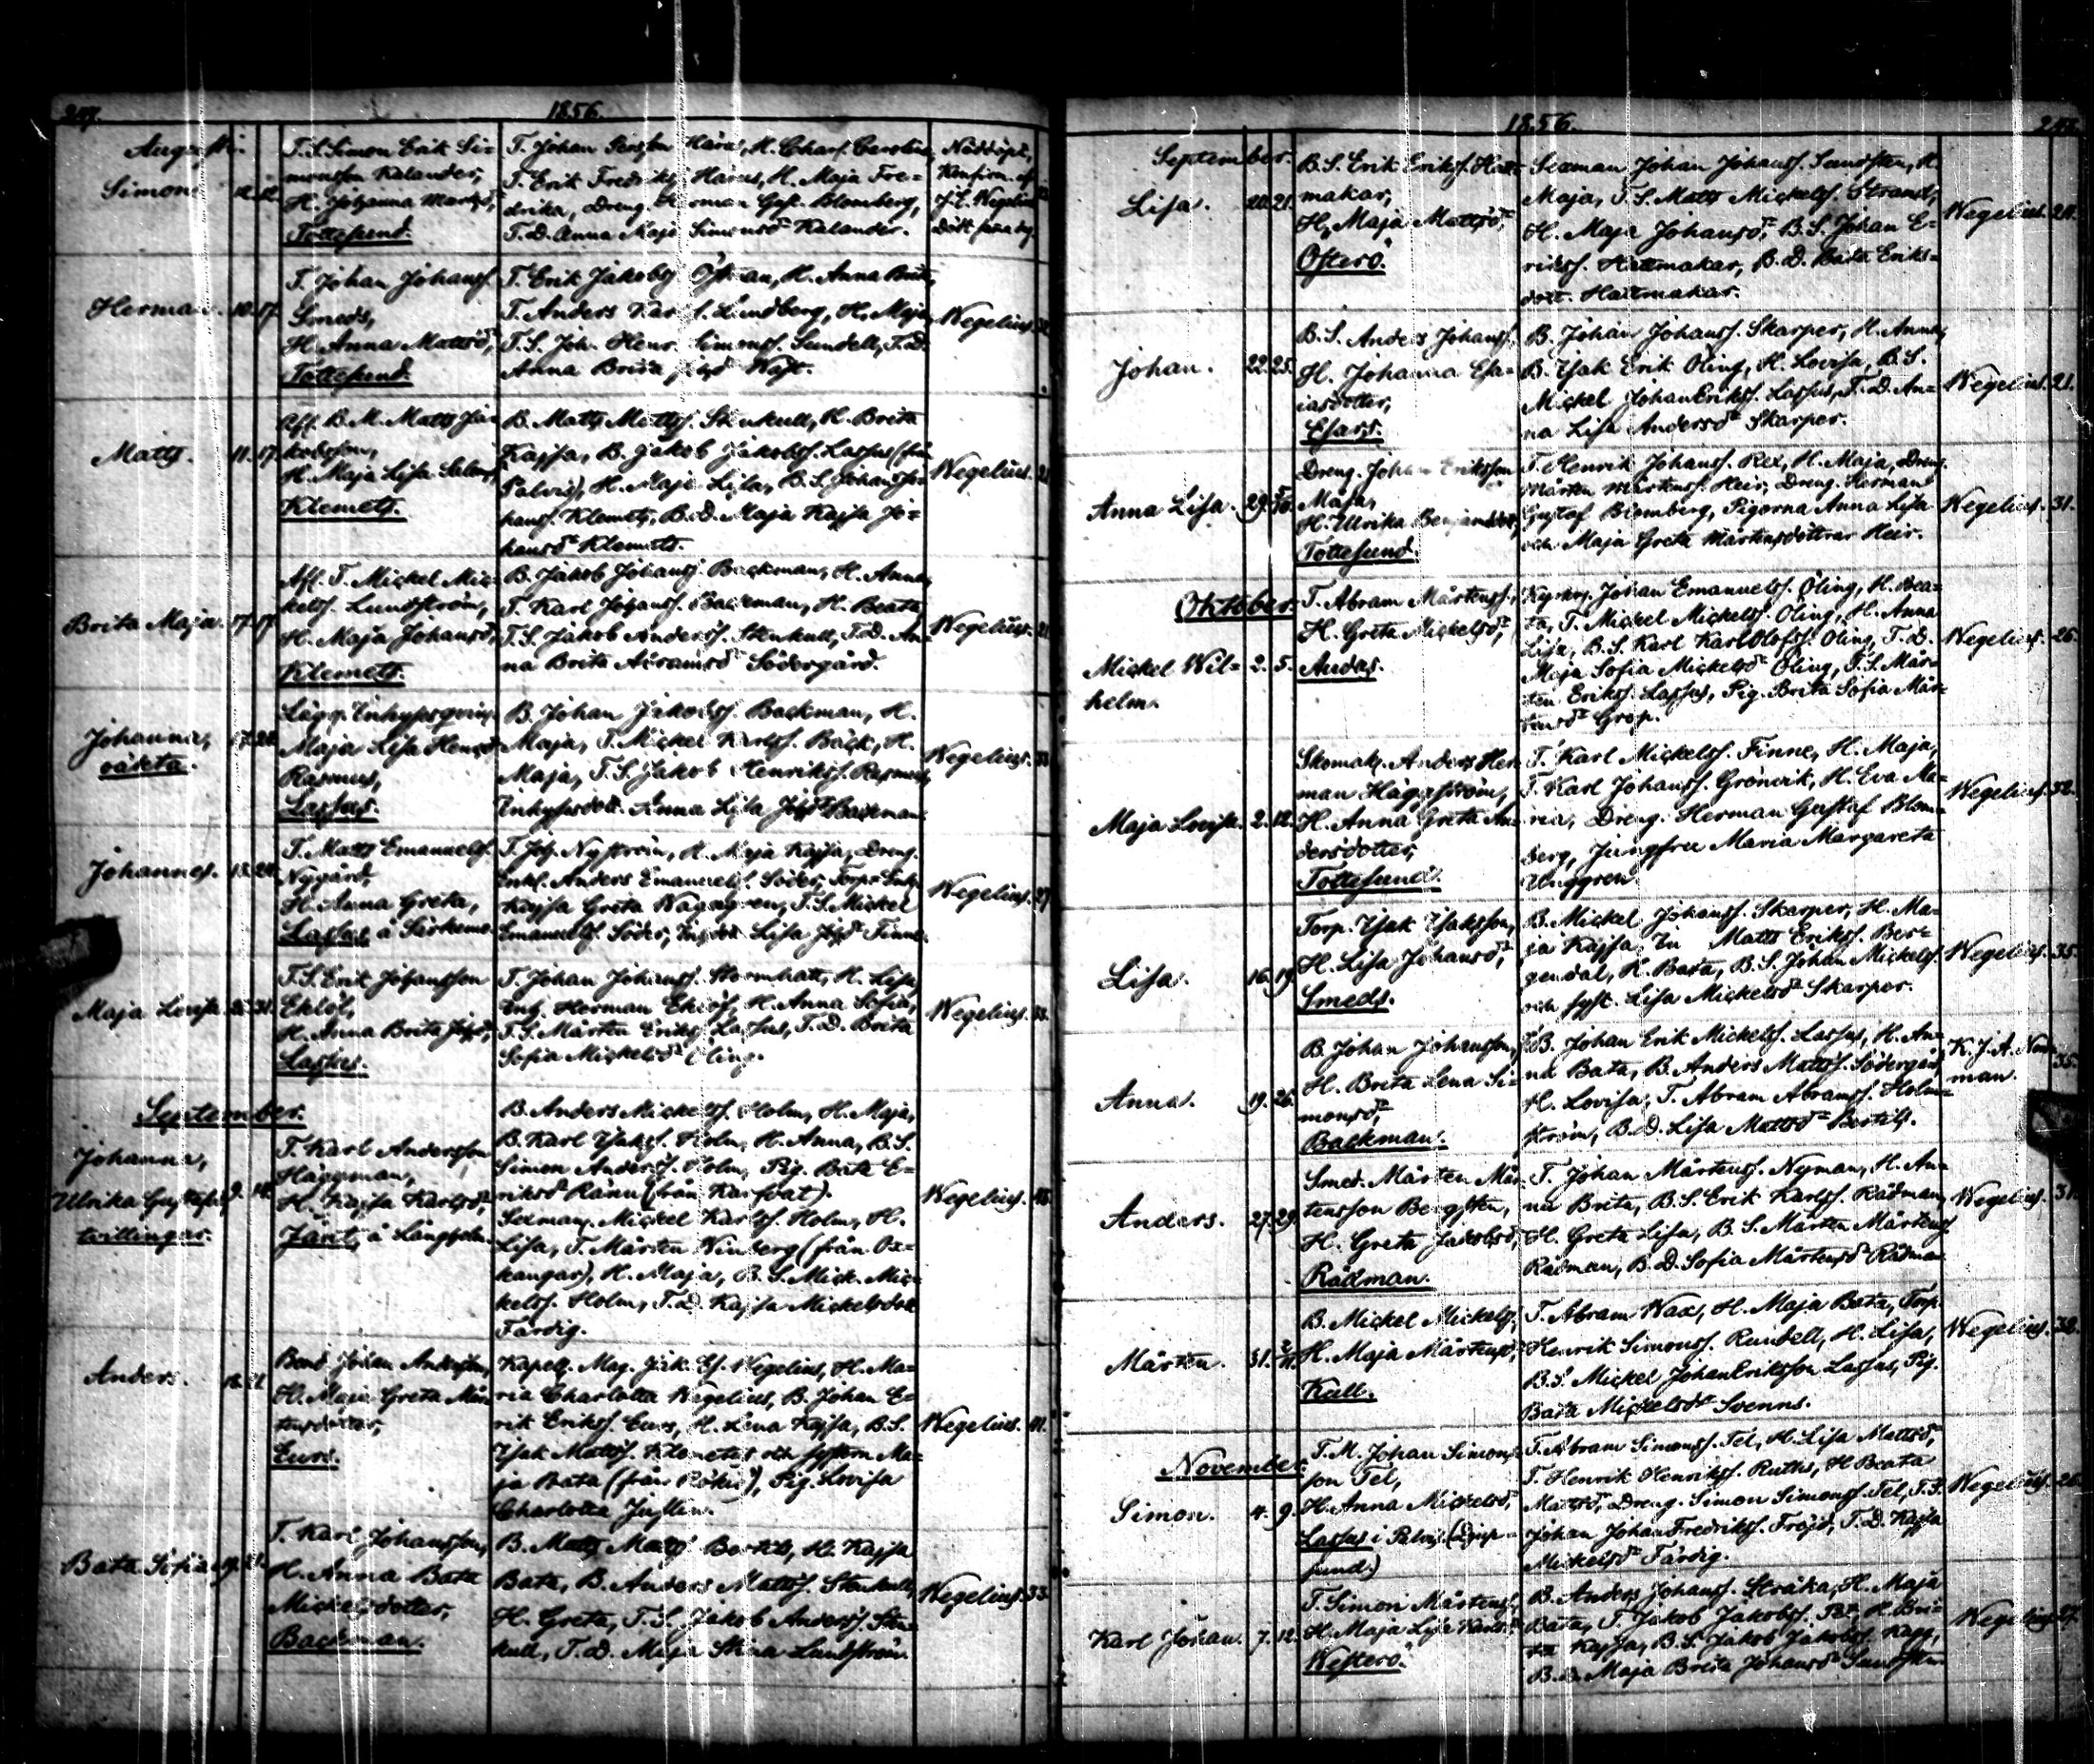 1856.
Augusti.
Simon 12. 12.
T. S. Simon Erik Si-
monsson Kalander,
H. Johanna Martsdr,
Tottesund.
T. Johan Härus, H. Charl. Carolina,
T. Erik Fredriks. Härus, H. Maja Fre-
drika, Dreng. Herman Gust. Blomberg,
T. D. Anna Maja Simonsdr Kalander.
Nöddöpt,
Konfirm. af
J. E. Wegelius
Död
Herman. 10. 17.
T. Johan Johanss.
Smeds,
H. Anna Mattsdr,
Tottesund.
T. Erik Jakobss. Östman, H. Anna Brita,
T. Anders Lundberg, H. Maja,
T. S. Joh. Henr. Simonss. Sundell, T. D.
Anna Brita
Wegelius.
Matts. 11. 17.
Aff. B. M. Matts Ja-
kobsson,
H. Maja Lisa
Klemets.
B. Matts Mattss. Stenkull, H. Brita
Kajsa, B. Jakob Jakobss. Lassus (från
Palvis), H. Maja Lisa, B. S. Johan Jo-
hanss. Klemets, B. D. Maja Kajsa Jo-
hansdr Klemets.
Wegelius.
Brita Maja. 17. 17.
Afl. T. Mickel Mic-
kelss. Lundström,
H. Maja Johansdr,
Klemets.
B. Jakob Johanss. Backman, H. Anna,
T. Karl Johanss. Backman, H. Beata,
T. S. Jakob Anderss. Stenkull, T. D. An-
na Brita Abramsdr Södergård.
Wegelius.
Johanna, 17. 20.
oäkta.
Lägg. Inhysesqvin.
Maja Lisa Henrsdr
Rasmus,
Lassus.
B. Johan Jakobss. Backman, H.
Maja, T. Mickel Karlss. Bäck, H.
Maja, T. S. Jakob Henrikss. Rasmus,
Inhysesdott. Anna Lisa Backman.
Wegelius.
Johannes. 15. 24.
T. Matts Emanuelss.
Nygård,
H. Anna Greta,
Lassus å Särkimo
T. Joh. Nyström, H. Maja Kajsa, Dreng.
Enkl. Anders Emanuelss. Söder,
Kajsa Greta T. S. Mickel
Emanuelss. Söder, Lisa Finne.
Wegelius. 27.
Maja Lovisa. 31.
T. S. Erik Johansson
Eklöf,
H. Anna Brita
Lassus.
T. Johan Johanss. Stormhatt, H. Lisa,
Herman H. Anna Sofia,
T. S. Mårten Erikss. Lassus, T. D. Brita
Sofia Mickelsdr Öling.
Wegelius. 33.
September.
Johanna,
Ulrika Gustafva, 9. 14.
tvillingar.
T. Karl Andersson
Häggman,
H. Kajsa Karlsdr,
Jänt, å Långholm
B. Anders Mickelss. Holm, H. Maja,
B. Karl Isakss. Holm, H. Anna, B. S.
Simon Anderss. Holm, Pig. Bata E-
riksdr Ränn (från Karfvat).
Sexman Mickel Karlss. Holm, H.
Lisa, T. Mårten Winberg (från Ox-
kangar), H. Maja, B. S. Mick. Mic-
kelss. Holm, T. D. Kajsa Mickelsdott
Färdig.
Wegelius.
Anders. 21.
Bond Johan Andersson,
H. Maja Greta Mår-
tensdotter,
Eurs.
Kapell. Mag. Jak. Es. Wegelius, H. Ma-
ria Charlotta Wegelius, B. Johan E-
rik Erikss. Eurs, H. Lena Kajsa, B. S.
Isak Mattss. Klemets och systern Ma-
ja Bata Pig. Lovisa
Charlotta Juslin.
Wegelius.
Bata Sofia 19. 21.
T. Karl Johansson,
H. Anna Bata
Mickelsdotter,
Backman.
B. Matts Mattss. Bertils, H. Kajsa
Bata, B. Anders Mattss. Stenkull,
H. Greta, T. S. Jakob Anderss. Sten-
kull, T. D. Maja Stina Lundström.
Wegelius. 33.
1856.
September.
Lisa. 20. 21.
B. S. Erik Erikss. Hatt-
makar,
H. Maja Mattsdr,
Österö.
Sexman Johan Johanss. Sundsten, H.
Maja, T. S. Matts Mickelss. Strand,
H. Maja Johansdr, B. S. Johan E-
rikss. Hattmakar, B. D. Bata Eriks-
dott. Hattmakar.
Wegelius. 24.
Johan. 22. 25.
B. S. Anders Johanss.
H. Johanna Esa-
iasdotter,
Esars.
B. Johan Johanss. Skarper, H. Anna,
B. Isak Erik Öling, H. Lovisa, B. S.
Mickel JohanErikss. Lassus, T. D. An-
na Lisa Andersdr Skarper.
Wegelius. 21.
Anna Lisa. 29.
Dreng. Johan Eriksson
Måsa,
H. Ulrika Benjamsdr,
Tottesund.
T. Henrik Johanss. Rex, H. Maja, Dreng.
Mårten Mårtenss. Heir, Dreng. Herman
Gustaf Blomberg, Pigorna Anna Lisa
och Maja Greta Mårtensdöttrar Heir.
Wegelius. 31.
Oktober.
Mickel Wil- 2. 5.
helm.
T. Abram Mårtenss.,
H. Greta Mickelsdr,
Andas.
Kyrkv. Johan Emanuelss. Öling, H. Bea-
ta, T. Mickel Mickelss. Öling, H. Anna
Lisa, B. S. Karl KarlOlofss. Öling, T. D.
Maja Sofia Mickelsdr Öling, T. S. Mår-
ten Erikss. Lassus, Pig. Brita Sofia Mår-
tensdr Grop.
Wegelius. 26.
Maja Lovisa. 2. 12.
Skomak. Anders Her-
man Häggström,
H. Anna Greta An-
dersdotter,
Tottesund.
T. Karl Mickelss. Finne, H. Maja,
T. Karl Johanss. Grönvik, H. Eva Ma-
ria, Dreng. Herman Gustaf Blom-
berg, Jungfru Maria Margareta
Unggren.
Wegelius. 32.
Lisa. 16. 19.
Torp. Isak Isaksson,
H. Lisa Johansdr,
Smeds.
B. Mickel Johanss. Skarper, H. Ma-
ja Kajsa, In Matts Erikss. Ber-
gendal, H. Bata, B. S. Johan Mickelss.
och syst. Lisa Mickelsdr Skarper.
Wegelius. 35.
Anna. 19. 26.
B. Johan Johansson,
H. Brita Lena Si-
monsdr
Backman.
B. Johan Erik Mickelss. Lassus, H. An-
na Bata, B. Anders Mattss. Södergård,
H. Lovisa, T. Abram Abramss. Holm-
ström, B. D. Lisa Mattsdr Bertils.
K. J. A. Nord-
man. 35.
Anders. 27. 29.
Smed. Mårten Mår-
tensson Bergsten,
H. Greta Jakobsdr,
Rådman.
T. Johan Mårtenss. Nyman, H. An-
na Brita, B. S. Erik Karlss. Rådman,
H. Greta Lisa, B. S. Mårten Mårtenss.
Rådman, B. D. Sofia Mårtensdr Rådman
Wegelius. 31.
Mårten. 31. 2/11.
B. Mickel Mickelss.,
H. Maja Mårtensdr,
Kull.
T. Abram Wax, H. Maja Bata, Torp.
Henrik Simonss. Rundell, H. Lisa,
B. S. Mickel JohanEriksson Lassus, Pig.
Bata Mickelsdr Svenns.
Wegelius. 32.
November.
Simon. 4. 9.
T. M. Johan Simons-
son Tel,
H. Anna Mickelsdr,
Lassus i Palvis (Djup-
sund.)
T. Abram Simonss. Tel, H. Lisa Mattsdr,
T. Henrik Henrikss. Ruths, H. Beata
Mattsdr, Dreng. Simon Simonss. Tel, T. S.
Johan JohanFredrikss. Fröjd, T. D. Kajsa
Mickelsdr Färdig.
Wegelius. 26.
Karl Johan. 7. 12.
T. Simon Mårtenss.,
H. Maja Lisa Karlsdr
Westerö.
B. Anders Johanss. Stråka, H. Maja
Bata, T. Jakob Jakobss. H. Bri-
ta Kajsa, B. S. Jakob Jakobss. Kagg,
B. D. Maja Brita Johansdr Sundsten.
Wegelius.